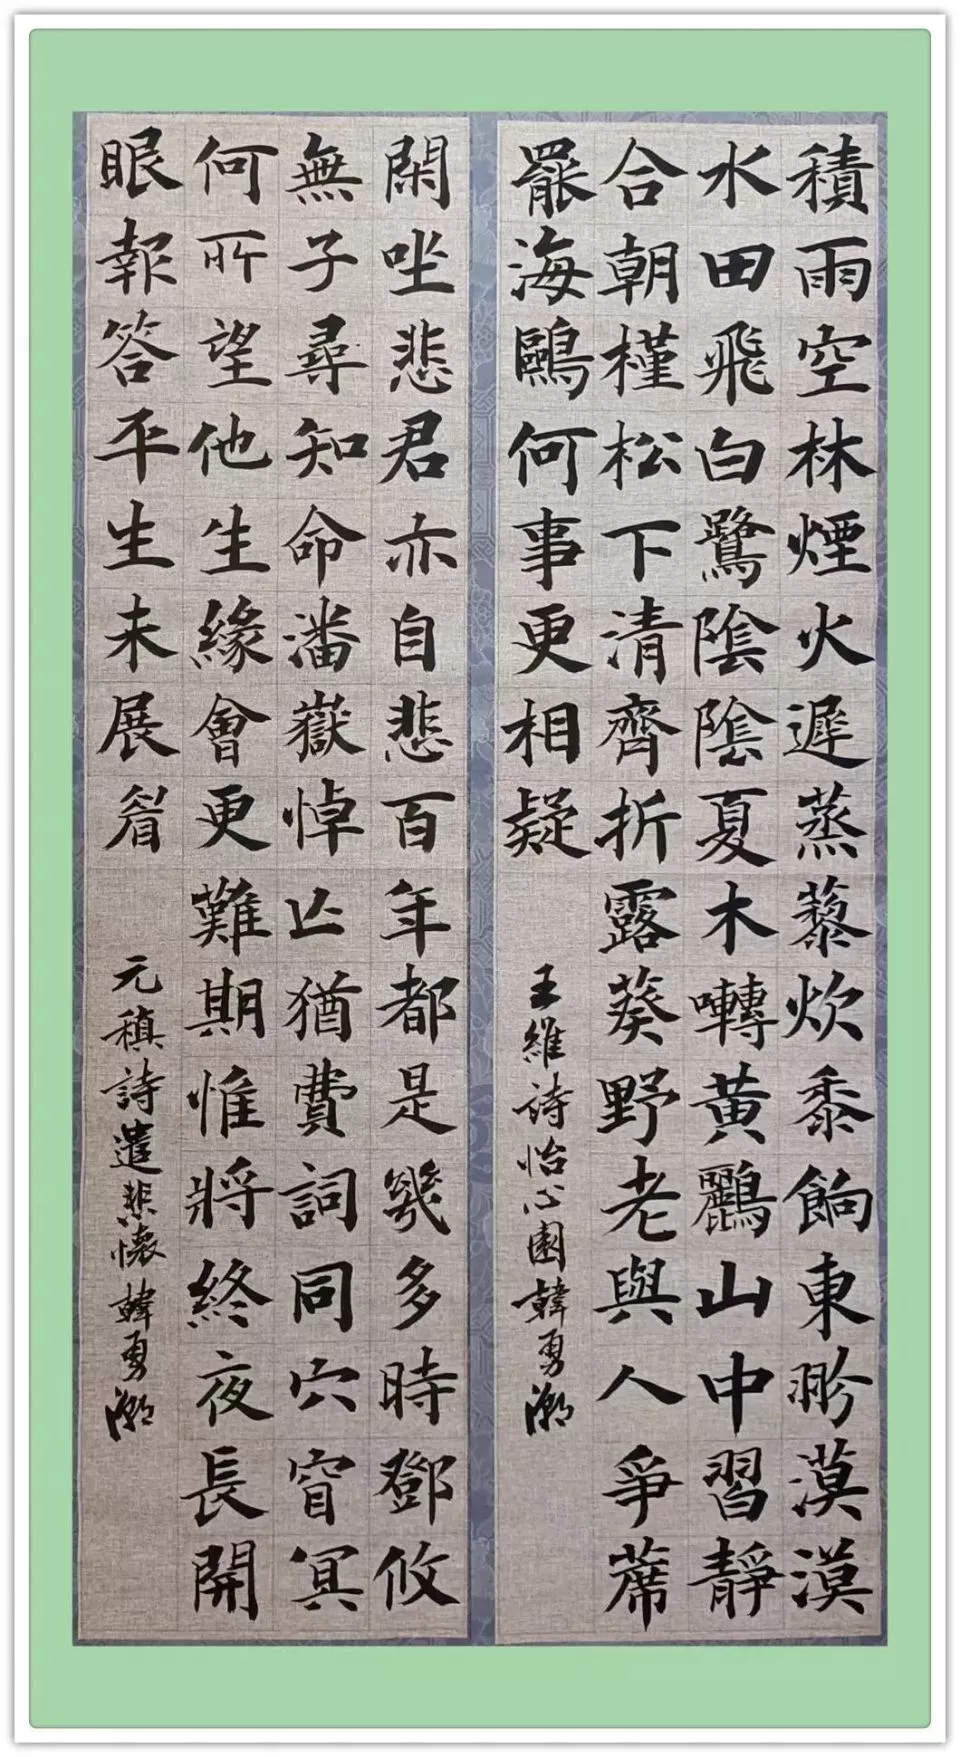 積雨空林煙火遲蒸藜炊黍餉東漠漠
水田飛白鷺陰陰夏木囀黃鸝山中習靜
合朝槿松下清齊折露葵野老與人爭蓆
罷海鷗何事更相疑
王維詩怡心園韓勇
閑坐悲君亦自悲百年都是幾多時鄧攸
無子尋知命潘嶽悼亡猶費詞同穴窅冥
何所望他生緣會更難期惟將終夜長開
眼報答平生未展眉
元稹詩遣悲懷韓勇